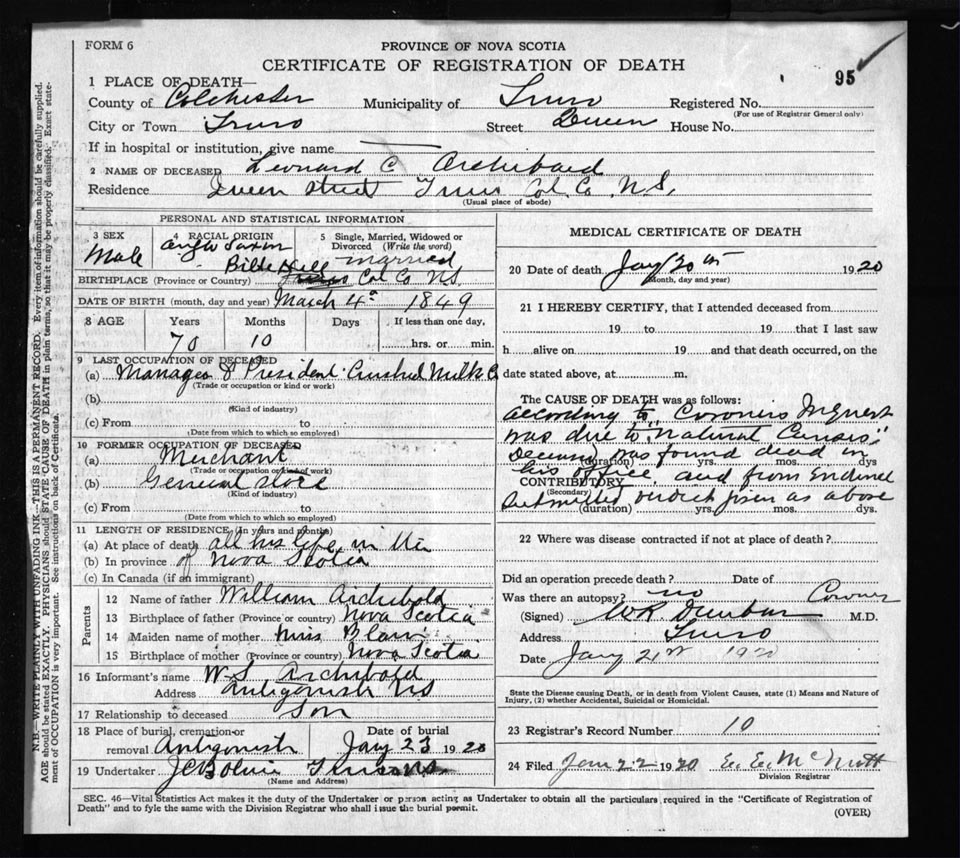 FORM 6
PROVINCE OF NOVA SCOTIA
95
CERTIFICATE OF REGISTRATION OF DEATH
1 PLACE OF DEATH—
County of Colchester Municipality of Truro Registered No.
(For use of Registrar General only)
City or Town Truro Street Queen House No.
If in hospital or institution, give name
2 NAME OF DECEASED Leonard C Archibald
Residence Queen Street Truro Col. Co. N.S.
(Usual place of abode)
PERSONAL AND STATISTICAL INFORMATION
3 SEX 4 RACIAL ORIGIN 5 Single, Married, Widowed or Divorced (Write the word)
Male Anglo Saxon married
Bible Hill
BIRTHPLACE (Province or Country) Col Co N.S.
DATE OF BIRTH (month, day and year) March 4 1849
8 AGE Years Months Days If less than one day,
70 10 hrs. or min.
9 LAST OCCUPATION OF DECEASED
(a) Manager & President Milk
(Trade or occupation or kind or work)
(b)
(Kind of industry)
(c) From to
(Date from which to which so employed)
10 FORMER OCCUPATION OF DECEASED
(a) Merchant
(Trade or occupation or kind of work)
(b) General store
(Kind of industry)
(c) From to
(Date from which to which so employed)
11 LENGTH OF RESIDENCE (In years and months)
(a) At place of death all his life in
(b) In province of Nova Scotia
(c) In Canada (if an immigrant)
Parents
12 Name of father William Archibald
13 Birthplace of father (Province or country) Nova Scotia
14 Maiden name of mother Miss Blair
15 Birthplace of mother (Province or country) Nova Scotia
16 Informant's name W. S. Archibald
Address Antigonish NS
17 Relationship to deceased Son
18 Place of burial, cremation or removal Antigonish Date of burial Jany 23 1920
19 Undertaker Truro NS
(Name and Address)
MEDICAL CERTIFICATE OF DEATH
20 Date of death Jany 20 1920
(Month, day and year)
21 I HEREBY CERTIFY, that I attended deceased from
19 to 19 that I last saw
h alive on 19 and that death occurred, on the
date stated above, at m.
The CAUSE OF DEATH was as follows:
according to Coroners Inquest
was due to "Natural Causes".
Deceased was found dead in
(duration) yrs. mos. dys
his office, and from Evidence
CONTRIBUTORY
(Secondary)
Submitted verdict given as above
(duration) yrs. mos. dys.
22 Where was disease contracted if not at place of death?
Did an operation precede death? Date of
Was there an autopsy? no Coroner
(Signed) W R Dunbar M.D.
Address Truro
Date Jany 21st 1920
State the Disease causing Death, or in death from Violent Causes, state (1) Means and Nature of
Injury, (2) whether Accidental, Suicidal or Homicidal.
23 Registrar's Record Number 10
24 Filed Jan 22 1920 E. E. McNutt
Division Registrar
SEC. 46—Vital Statistics Act makes it the duty of the Undertaker or person acting as Undertaker to obtain all the particulars required in the "Certificate of Registration of
Death" and to fyle the same with the Division Registrar who shall issue the burial permit.
(OVER)
N.B.—WRITE PLAINLY WITH UNFADING INK—THIS IS A PERMANENT RECORD. Every item of information should be carefully supplied.
AGE should be stated EXACTLY. PHYSICIANS should STATE CAUSE OF DEATH in plain terms, so that it may be properly classified. Exact state-
ment of OCCUPATION is very important. See instructions on back of Certificate.